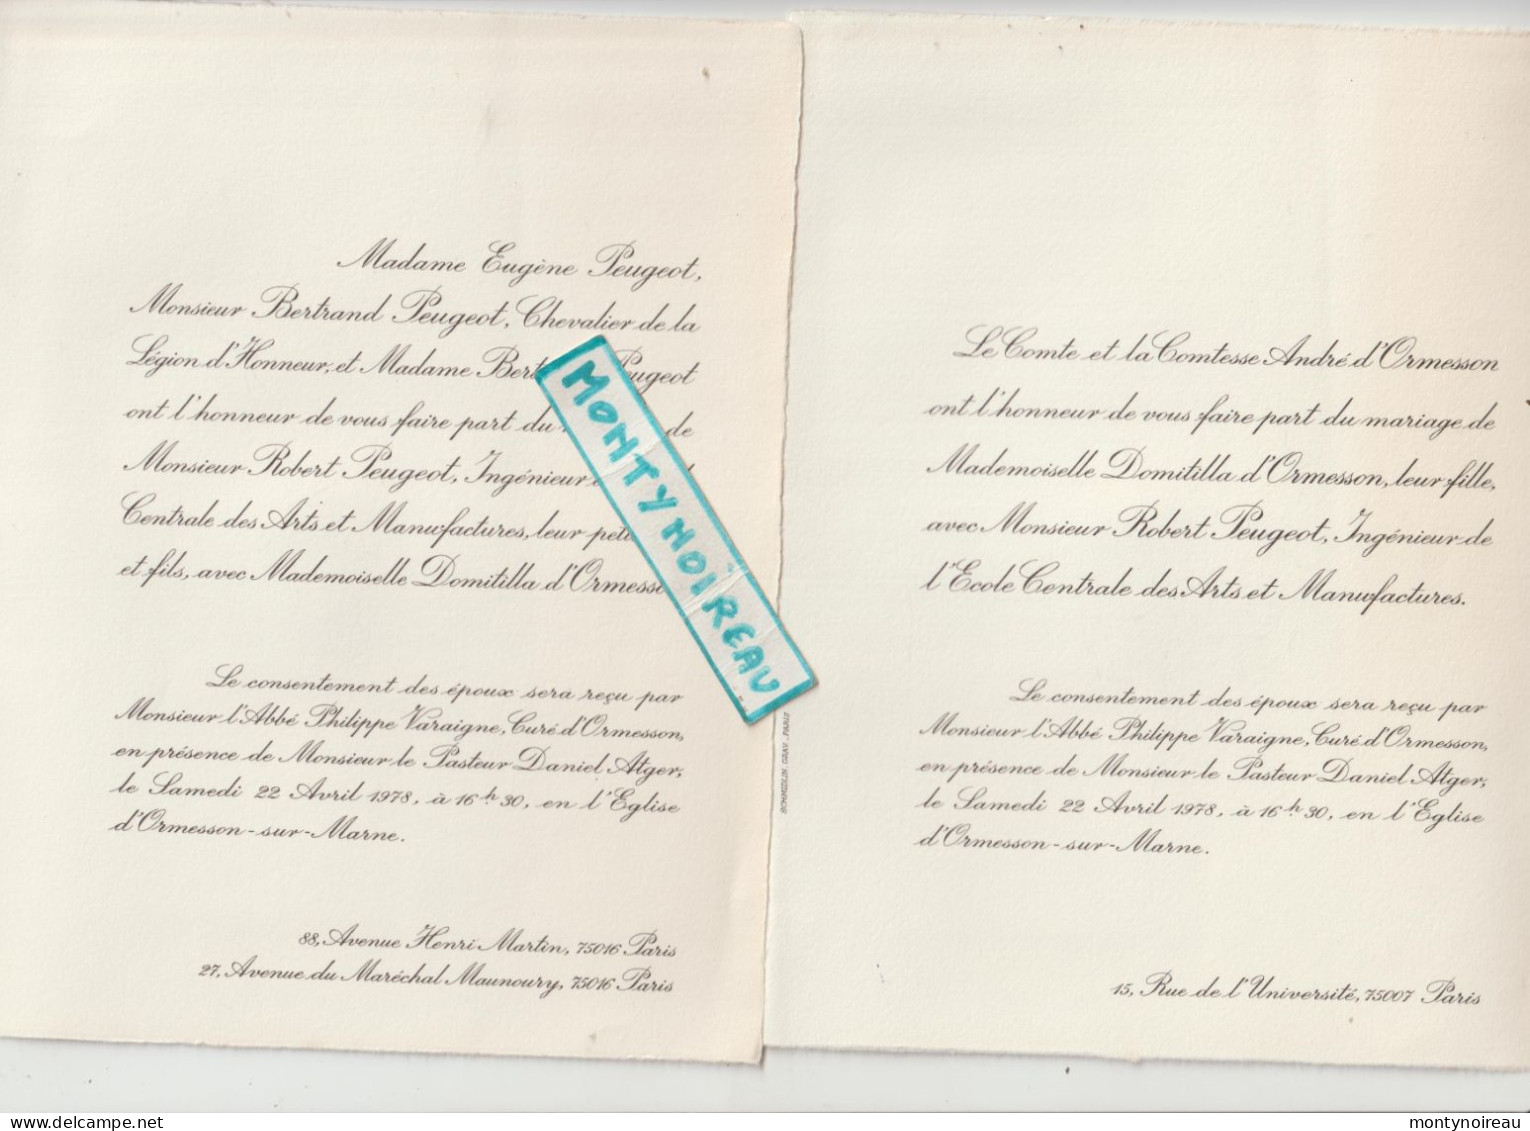 Madame Eugène Peugeot,
Monsieur Bertrand Peugeot, Chevalier de la
Légion d'Honneur, et Madame Peugeot
ont l'honneur de vous faire part du de
Monsieur Robert Peugeot, Ingénieur
Centrale des Arts et Manufactures, leur
et fils, avec Mademoiselle Domitilla
Le consentement des époux sera reçu par
Monsieur l'Abbé Philippe Varaigne, Curé d'Ormesson,
en présence de Monsieur le Pasteur Daniel Atger,
le Samedi 22 Avril 1978, à 16 h. 30, en l'Eglise
d'Ormesson-sur-Marne.
88, Avenue Henri Martin, 75016 Paris
27, Avenue du Maréchal Maunoury, 75016 Paris
MONTYNOIREAU
SCHMIDLIN, GRAV., PARIS
Le Comte et la Comtesse André d'Ormesson
ont l'honneur de vous faire part du mariage de
Mademoiselle Domitilla d'Ormesson, leur fille,
avec Monsieur Robert Peugeot, Ingénieur de
l'Ecole Centrale des Arts et Manufactures.
Le consentement des époux sera reçu par
Monsieur l'Abbé Philippe Varaigne, Curé d'Ormesson,
en présence de Monsieur le Pasteur Daniel Atger,
le Samedi 22 Avril 1978, à 16 h. 30, en l'Eglise
d'Ormesson-sur-Marne.
15, Rue de l'Université, 75007 Paris
Delcampe.net
montynoireau